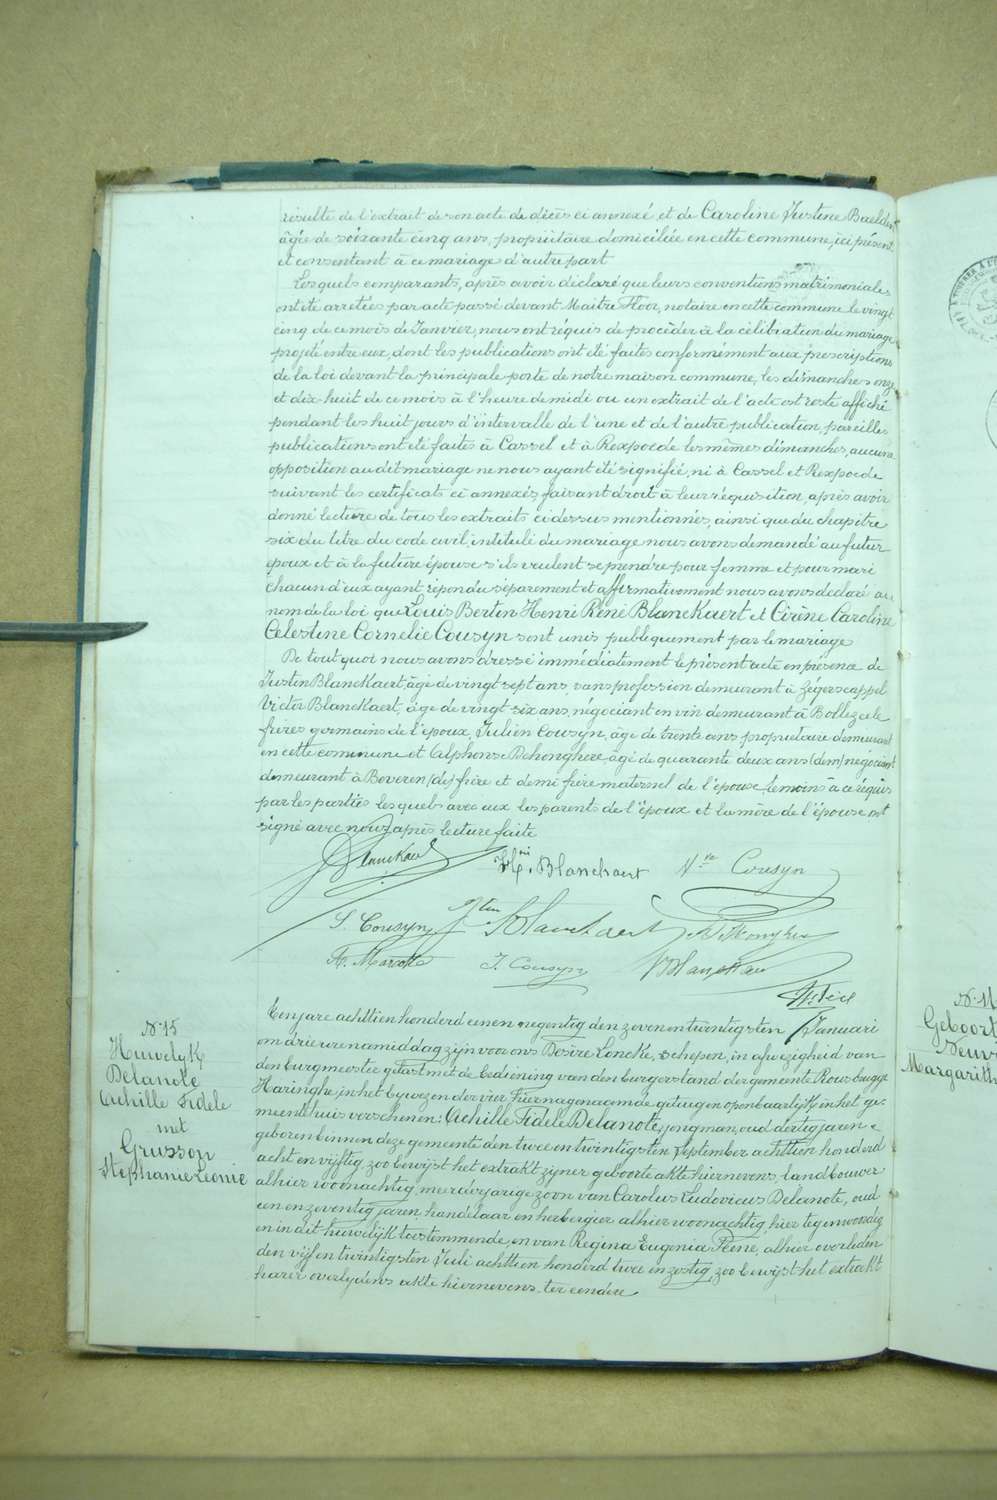 résulte de l'extrait de son acte de décès ci annexé, et de Caroline Justine Baelden
âgée de soixante cinq ans, propriétaire domiciliée en cette commune, ici présent
et consentant à ce mariage d'autre part
Lesquels comparants, après avoir déclaré que leurs conventions matrimoniales
ont été arrêtées par acte passé devant Maître Floor, notaire en cette commune le vingt
cinq de ce mois de Janvier, nous ont réquis de procéder à la célébration du mariage
projeté entre eux, dont les publications ont été faites conformément aux prescriptions
de la loi devant la principale porte de notre maison commune, les dimanches onze
et dix huit de ce mois à l'heure de midi ou un extrait de l'acte est resté affiché
pendant les huit jours d'intervalle de l'une et de l'autre publication, pareilles
publications ont été faites à Cassel et à Rexpoede les mêmes dimanches, aucune
opposition au dit mariage ne nous ayant été signifié, ni à Cassel et Rexpoede
suivant les certificats ci annexés, faisant droit à leur réquisition, après avoir
donné lecture de tous les extraits ci dessus mentionnés, ainsi que du chapitre
six du titre du code civil, intitulé du mariage nous avons demandé au futur
époux et à la future épouse s'ils veulent se prendre pour femme et pour mari
chacun d'eux ayant répondu séparement et affirmativement nous avons déclaré au
nom de la loi que Louis Bertin Henri René Blanckaert et Cirène Caroline
Célestine Cornélie Cousyn sont unis publiquement par le mariage
De tout quoi nous avons dressé immédiatement le présent acte en présence de
Justin Blanckaert, âgé de vingt sept ans, sans profession demeurant à Zégerscappel
Victor Blanckaert, âgé de vingt six ans, négociant en vin demeurant à Bollezeele
frères germains de l'époux, Julien Cousyn, âgé de trente ans propriétaire demeurant
en cette commune et Alphonse Dehonghere âgé de quarante deux ans (dem) négociant
demeurant à Beveren (de) frère et demi frère maternel de l'épouse, temoins à ce réquis
par les parties lesquels avec eux les parents de l'époux et la mère de l'épouse ont
signé avec nous, après lecture faite
Blanckaert Hri. Blanckaert Vve Cousyn
S. Cousyn Jtin Blanckaert
J. Cousyn V Blanckaert
N: 15
Huwelyk
Delanote
Achille Fidele
met
Grusson
Stephanie Leonie
Een jare achttien honderd een en negentig den zeven en twintigsten Januari
om drie uren namiddag zijn voor ons Désiré Loncke, schepen, in afwezigheid van
den burgmeester gelast met de bediening van den burgerstand der gemeente Rousbrugge
Haringhe, in het bywezen der vier hiernagenaamde getuigen openbaarlijk in het ge-
meentehuis verschenen: Achille Fidele Delanote, jongman, oud dertig jaren
geboren binnen deze gemeente den twee en twintigsten September achttien honderd
acht en vyftig, zoo bewijst het extrakt zijner geboorte akte hiernevens, landbouwer
alhier woonachtig, meerderjarige zoon van Carolus Ludovicus Delanote, oud
een en zeventig jaren, handelaar en herbergier alhier woonachtig, hier tegenwoordig
en in dit huwelijk toestemmende, en van Regina Eugenia Feine, alhier overleden
den vijf en twintigsten Juli achttien honderd twee en zestig, zoo bewijst het extrakt
harer overlydens akte hiernevens, ter eendere
N: 1
Geboort
Margarith